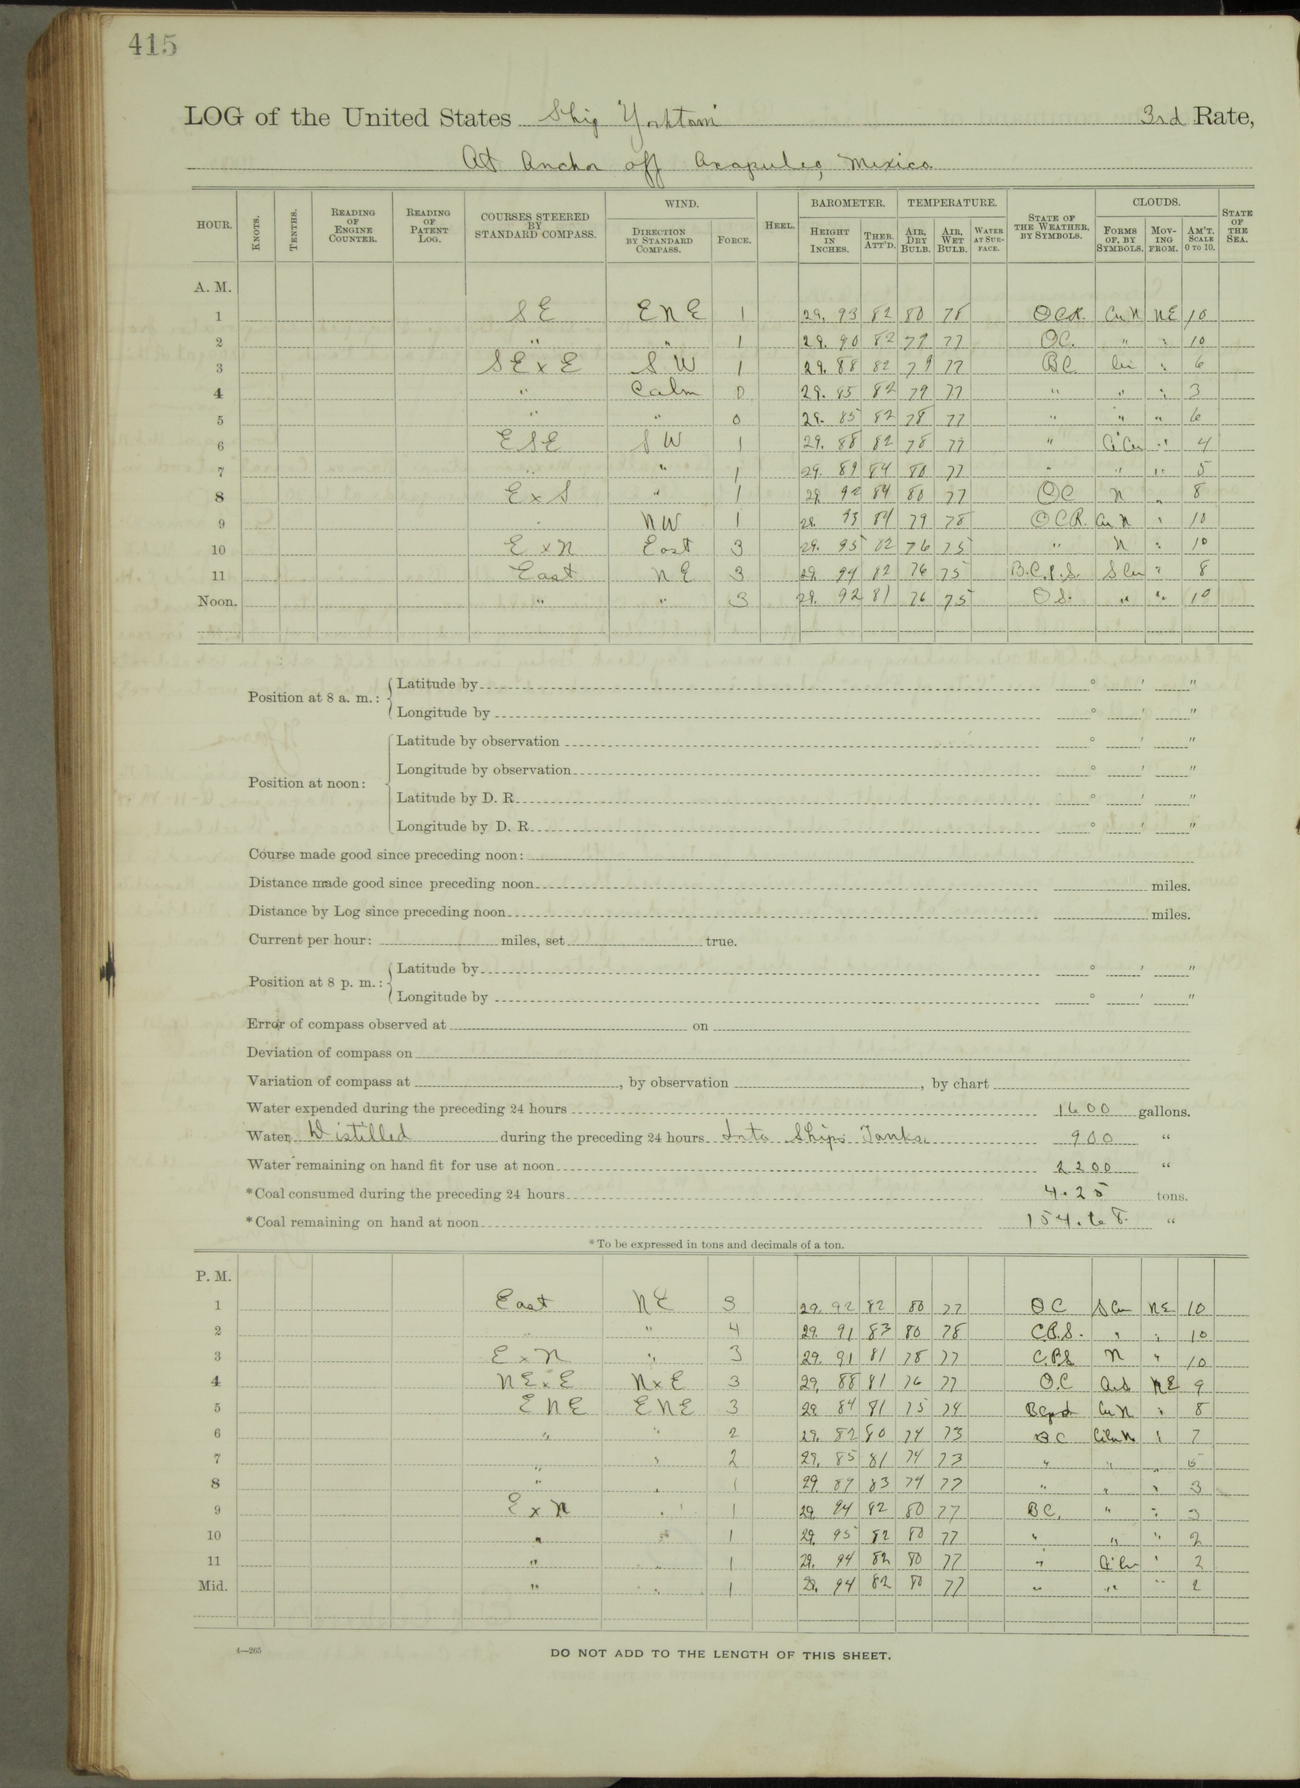 415
LOG of the United States Ship "Yorktown" 3rd Rate,
At Anchor off Acapulco, Mexico
HOUR. KNOTS. TENTHS. READING OF ENGINE COUNTER. READING OF PATENT LOG. COURSES STEERED BY STANDARD COMPASS. WIND. DIRECTION BY STANDARD COMPASS. FORCE. HEEL. BAROMETER. HEIGHT IN INCHES. THER. ATT'D. TEMPERATURE. AIR, DRY BULB. AIR, WET BULB. WATER AT SURFACE. STATE OF THE WEATHER, BY SYMBOLS. CLOUDS. FORMS OF, BY SYMBOLS. MOVING FROM. AM'T. SCALE 0 TO 10. STATE OF THE SEA.
A. M.
1 SE ENE 1 29. 93 82 80 78 OCR. Cu N NE 10
2 " " 1 29. 90 82 79 77 OC. " " 10
3 SE x E SW 1 29. 88 82 79 77 BC " 6
4 " Calm 0 29. 85 82 79 77 " " " 3
5 " " 0 29. 85 82 78 77 " " " 6
6 ESE SW 1 29. 88 82 78 77 " Ci Cu " 4
7 " " 1 29. 89 84 80 77 " " " 5
8 E x S " 1 29. 92 84 80 77 OC N " 8
9 " NW 1 29. 93 84 79 78 OCR. Cu N " 10
10 E x N East 3 29. 95 82 76 75 " N " 10
11 East NE 3 29. 94 82 76 75 S Cu " 8
Noon. " " 3 29. 92 81 76 75 " " 10
Position at 8 a. m.: Latitude by ° ' "
Longitude by ° ' "
Position at noon: Latitude by observation ° ' "
Longitude by observation ° ' "
Latitude by D. R. ° ' "
Longitude by D. R. ° ' "
Course made good since preceding noon:
Distance made good since preceding noon miles.
Distance by Log since preceding noon miles.
Current per hour: miles, set true.
Position at 8 p. m.: Latitude by ° ' "
Longitude by ° ' "
Error of compass observed at on
Deviation of compass on
Variation of compass at , by observation , by chart
Water expended during the preceding 24 hours 1600 gallons.
Water, Distilled during the preceding 24 hours Into Ships Tanks. 900 "
Water remaining on hand fit for use at noon 2200 "
*Coal consumed during the preceding 24 hours 4.25 tons.
*Coal remaining on hand at noon 154. "
*To be expressed in tons and decimals of a ton.
P. M.
1 East NE 3 29. 92 82 80 77 OC S Cu NE 10
2 " " 4 29. 91 83 80 78 " " 10
3 E x N " 3 29. 91 81 78 77 N " 10
4 NE x E N x E 3 29. 88 81 76 77 O.C NE 9
5 ENE ENE 3 29. 84 81 75 74 Cu N " 8
6 " " 2 29. 82 80 74 73 BC " 7
7 " " 2 29. 85 81 74 73 " " "
8 " " 1 29. 87 83 79 77 " " " 3
9 E x N " 1 29. 94 82 80 77 BC. " " 3
10 " " 1 29. 95 82 80 77 " " " 2
11 " " 1 29. 94 82 80 77 " Ci Cu " 2
Mid. " " 1 29. 94 82 80 77 " " " 2
4—265
DO NOT ADD TO THE LENGTH OF THIS SHEET.